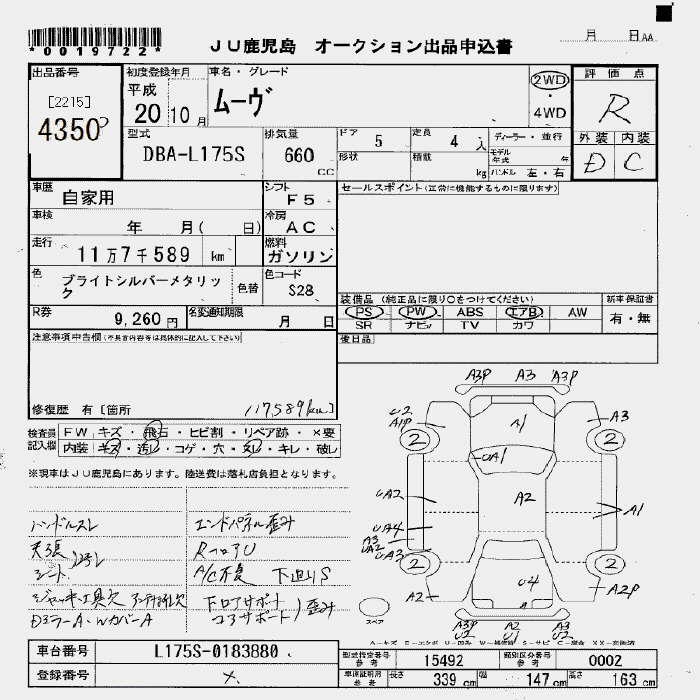 *0019722*
JU鹿児島 オークション出品申込書
月 日 AA
出品番号
[2215]
4350
初度登録年月
平成
20 10月
車名・グレード
ムーヴ
2WD
・
4WD
評価点
R
型式
DBA-L175S
排気量
660
CC
ドア
5
定員
4 人
形状
積載
kg
ディーラー・並行
モデル年式 年
ハンドル 左・右
外装 内装
D C
車歴
自家用
シフト
F5
セールスポイント(正常に機能するものに限ります)
車検
年 月( 日)
冷房
AC
走行
11万7千589 km
燃料
ガソリン
色
ブライトシルバーメタリック
色替
色コード
S28
装備品 (純正品に限り○をつけてください)
PS PW ABS エアB AW
SR ナビ TV カワ
新車保証書
有・無
R券
9,260 円
名変通知期限
月 日
後日品
注意事項申告欄(不具合内容等は具体的に記入して下さい)
修復歴 有 [箇所
117,589km
検査員記入欄
FW キズ・飛石・ヒビ割・リペア跡・×要
内装 キズ・汚レ・コゲ・穴・スレ・キレ・破レ
※現車はJU鹿児島にあります。陸送費は落札店負担となります。
ハンドルスレ
エンドパネル歪み
天張
シート
汚レ
RフロアU
A/C不良 下廻りS
ジャッキ・工具欠
下ロアサポート
コアサポート
歪み
DミラーA・WカバーA
A3P A3 A3P
U2
A1P
A1
A3
2
2
UA1
UA2
A2
A1
UA4
A3
UA2
UA3
2
2
U4
A2
A2P
スペア
A3P
U2
A2
U1
A3P
U2
車台番号
L175S-0183880
登録番号
型式指定番号
参考
15492
類別区分番号
参考
0002
車庫証明用
参考
長さ 339 cm
幅 147 cm
高さ 163 cm